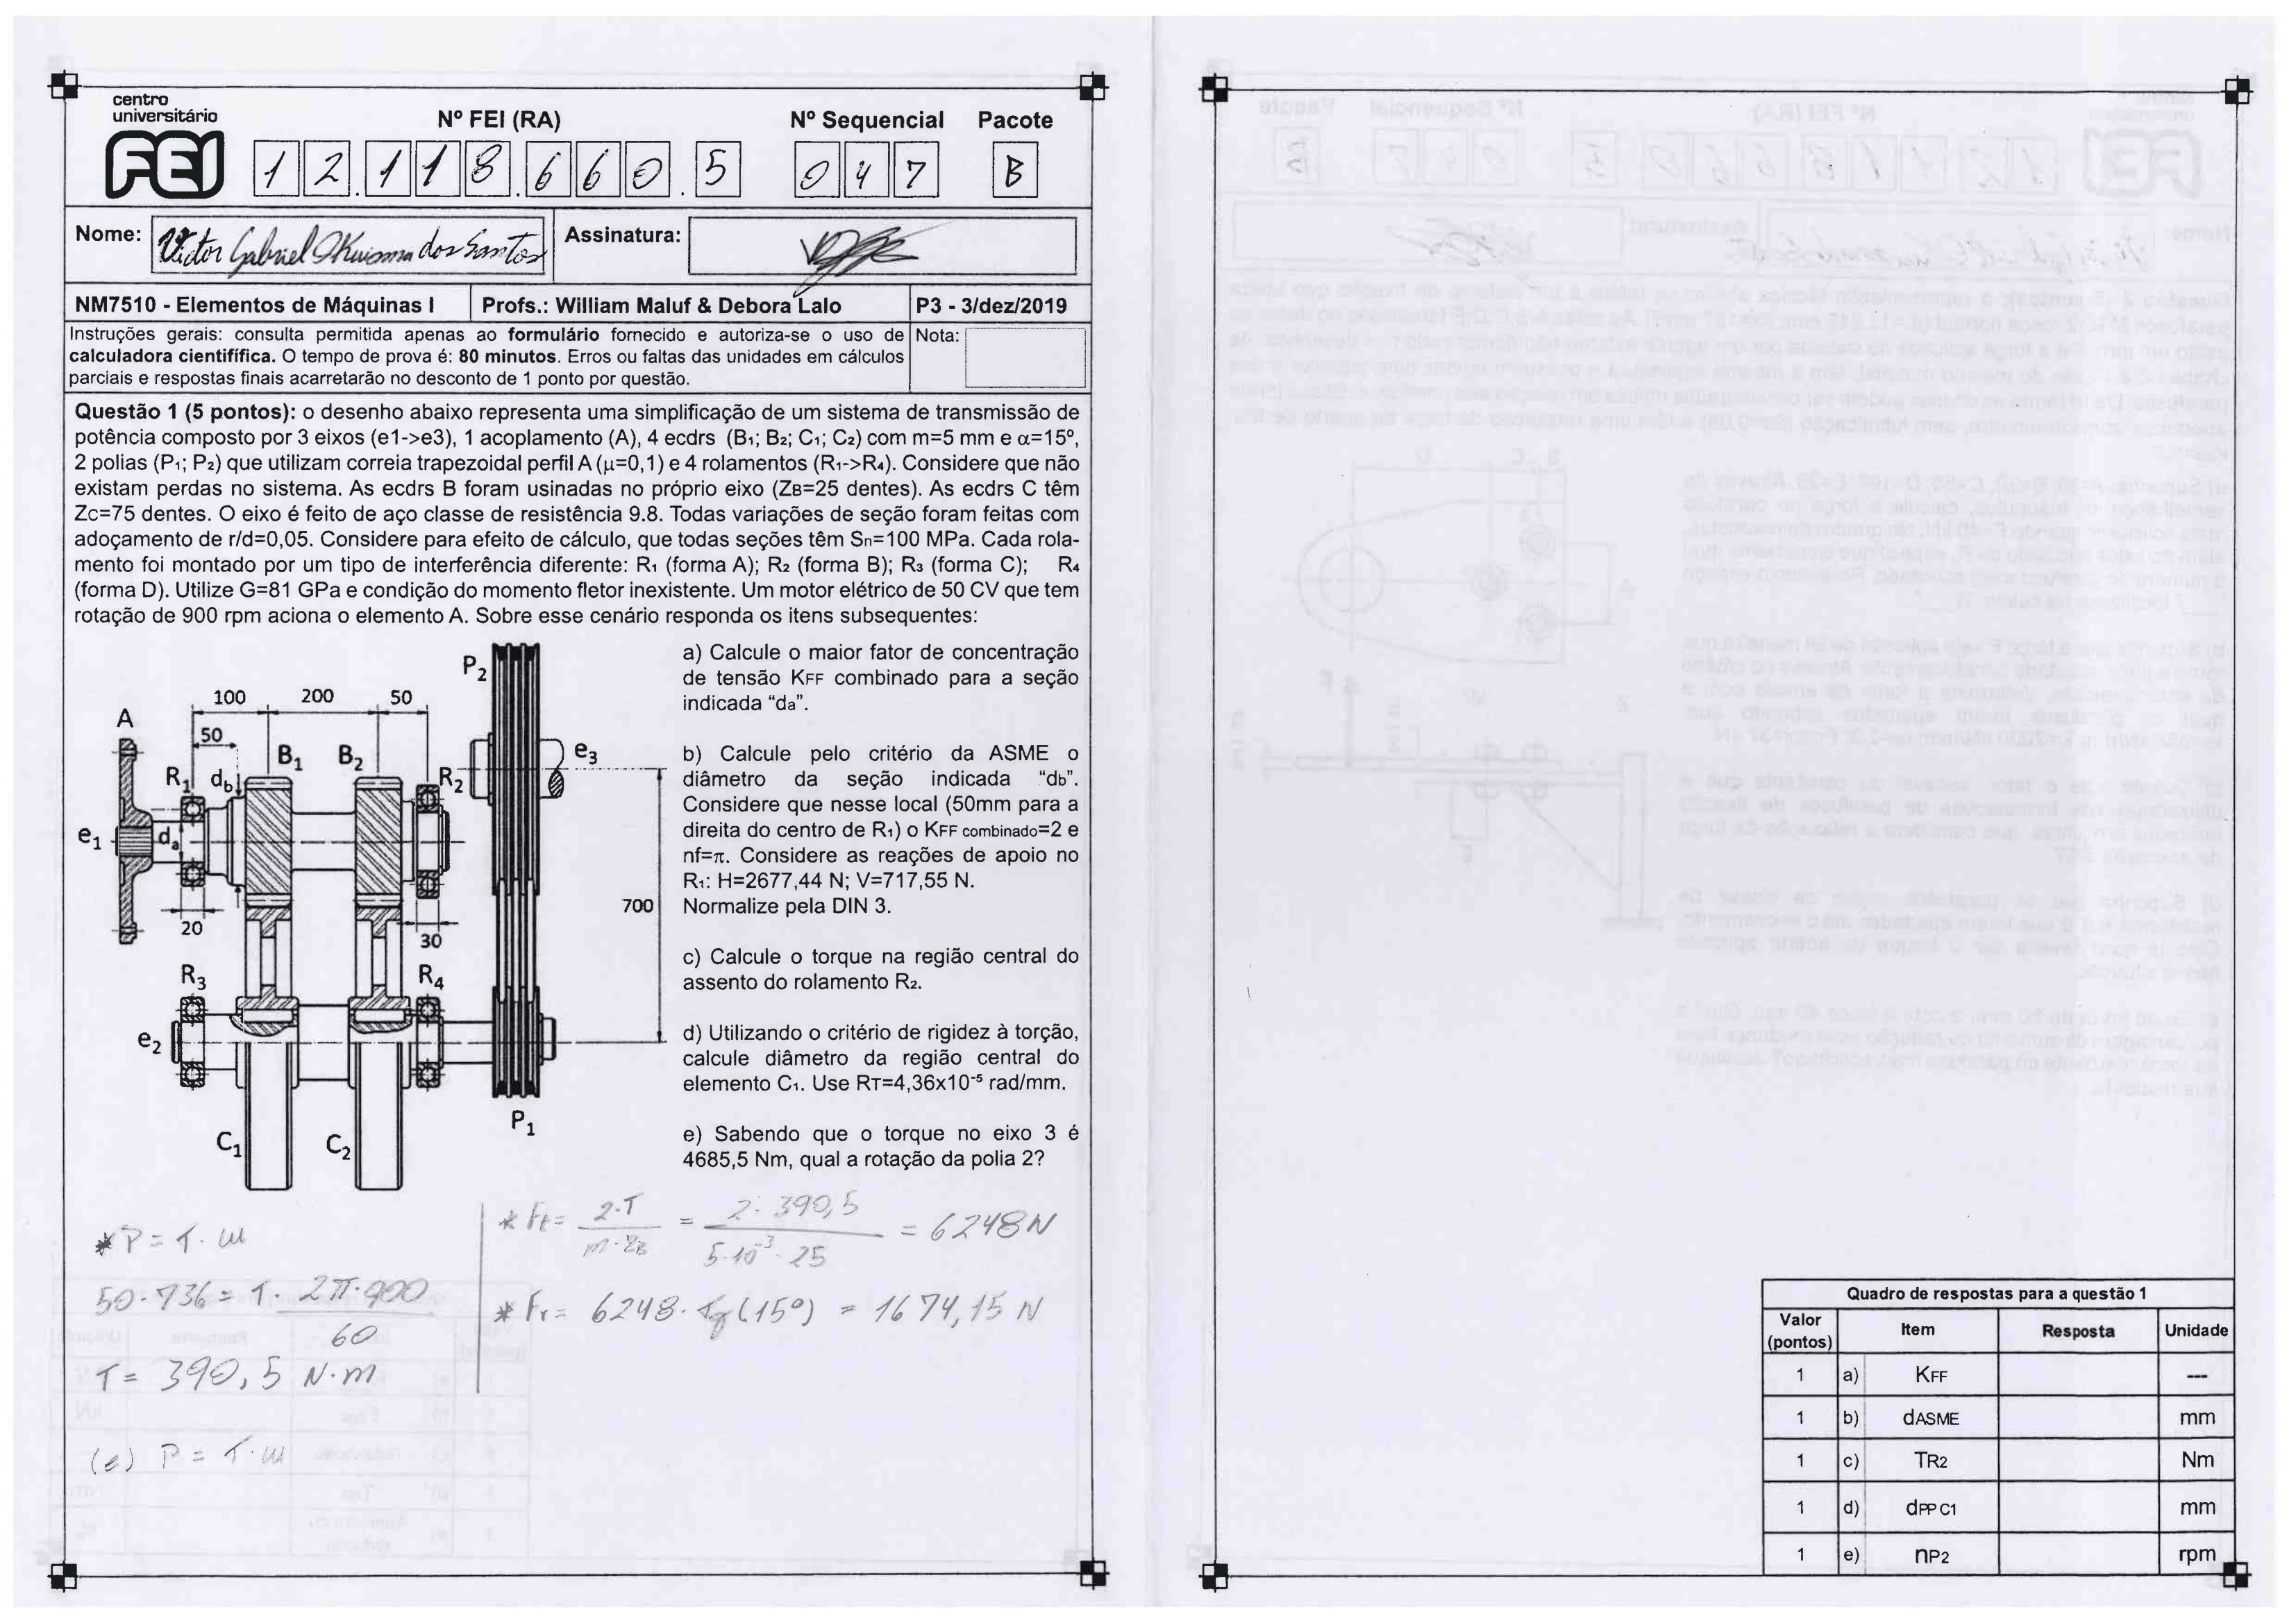 centro
universitário
FEI
Nº FEI (RA)
Nº Sequencial
Pacote
12.118.660.5
047
B
Nome: Victor Gabriel dos Santos
Assinatura:
NM7510 - Elementos de Máquinas I
Profs.: William Maluf & Debora Lalo
P3 - 3/dez/2019
Instruções gerais: consulta permitida apenas ao formulário fornecido e autoriza-se o uso de
calculadora cientifífica. O tempo de prova é: 80 minutos. Erros ou faltas das unidades em cálculos
parciais e respostas finais acarretarão no desconto de 1 ponto por questão.
Nota:
Questão 1 (5 pontos): o desenho abaixo representa uma simplificação de um sistema de transmissão de
potência composto por 3 eixos (e1->e3), 1 acoplamento (A), 4 ecdrs (B1; B2; C1; C2) com m=5 mm e α=15º,
2 polias (P1; P2) que utilizam correia trapezoidal perfil A (μ=0,1) e 4 rolamentos (R1->R4). Considere que não
existam perdas no sistema. As ecdrs B foram usinadas no próprio eixo (ZB=25 dentes). As ecdrs C têm
Zc=75 dentes. O eixo é feito de aço classe de resistência 9.8. Todas variações de seção foram feitas com
adoçamento de r/d=0,05. Considere para efeito de cálculo, que todas seções têm Sn=100 MPa. Cada rola-
mento foi montado por um tipo de interferência diferente: R1 (forma A); R2 (forma B); R3 (forma C); R4
(forma D). Utilize G=81 GPa e condição do momento fletor inexistente. Um motor elétrico de 50 CV que tem
rotação de 900 rpm aciona o elemento A. Sobre esse cenário responda os itens subsequentes:
P2
100
200
50
A
50
B1
B2
e3
R1
db
R2
e1
da
700
20
30
R3
R4
e2
C1
C2
P1
a) Calcule o maior fator de concentração
de tensão KFF combinado para a seção
indicada “da”.
b) Calcule pelo critério da ASME o
diâmetro da seção indicada “db”.
Considere que nesse local (50mm para a
direita do centro de R1) o KFF combinado=2 e
nf=π. Considere as reações de apoio no
R1: H=2677,44 N; V=717,55 N.
Normalize pela DIN 3.
c) Calcule o torque na região central do
assento do rolamento R2.
d) Utilizando o critério de rigidez à torção,
calcule diâmetro da região central do
elemento C1. Use RT=4,36x10-5 rad/mm.
e) Sabendo que o torque no eixo 3 é
4685,5 Nm, qual a rotação da polia 2?
* P = T · ω
50·736 = T · 2π·900 / 60
T = 390,5 N·m
(e) P = T·ω
* Ft = 2·T / m·ZB = 2·390,5 / 5·10-3·25 = 6248 N
* Fr = 6248 · tg(15º) = 1674,15 N
Quadro de respostas para a questão 1
Valor (pontos) Item Resposta Unidade
1 a) KFF ---
1 b) dASME mm
1 c) TR2 Nm
1 d) dPP C1 mm
1 e) nP2 rpm